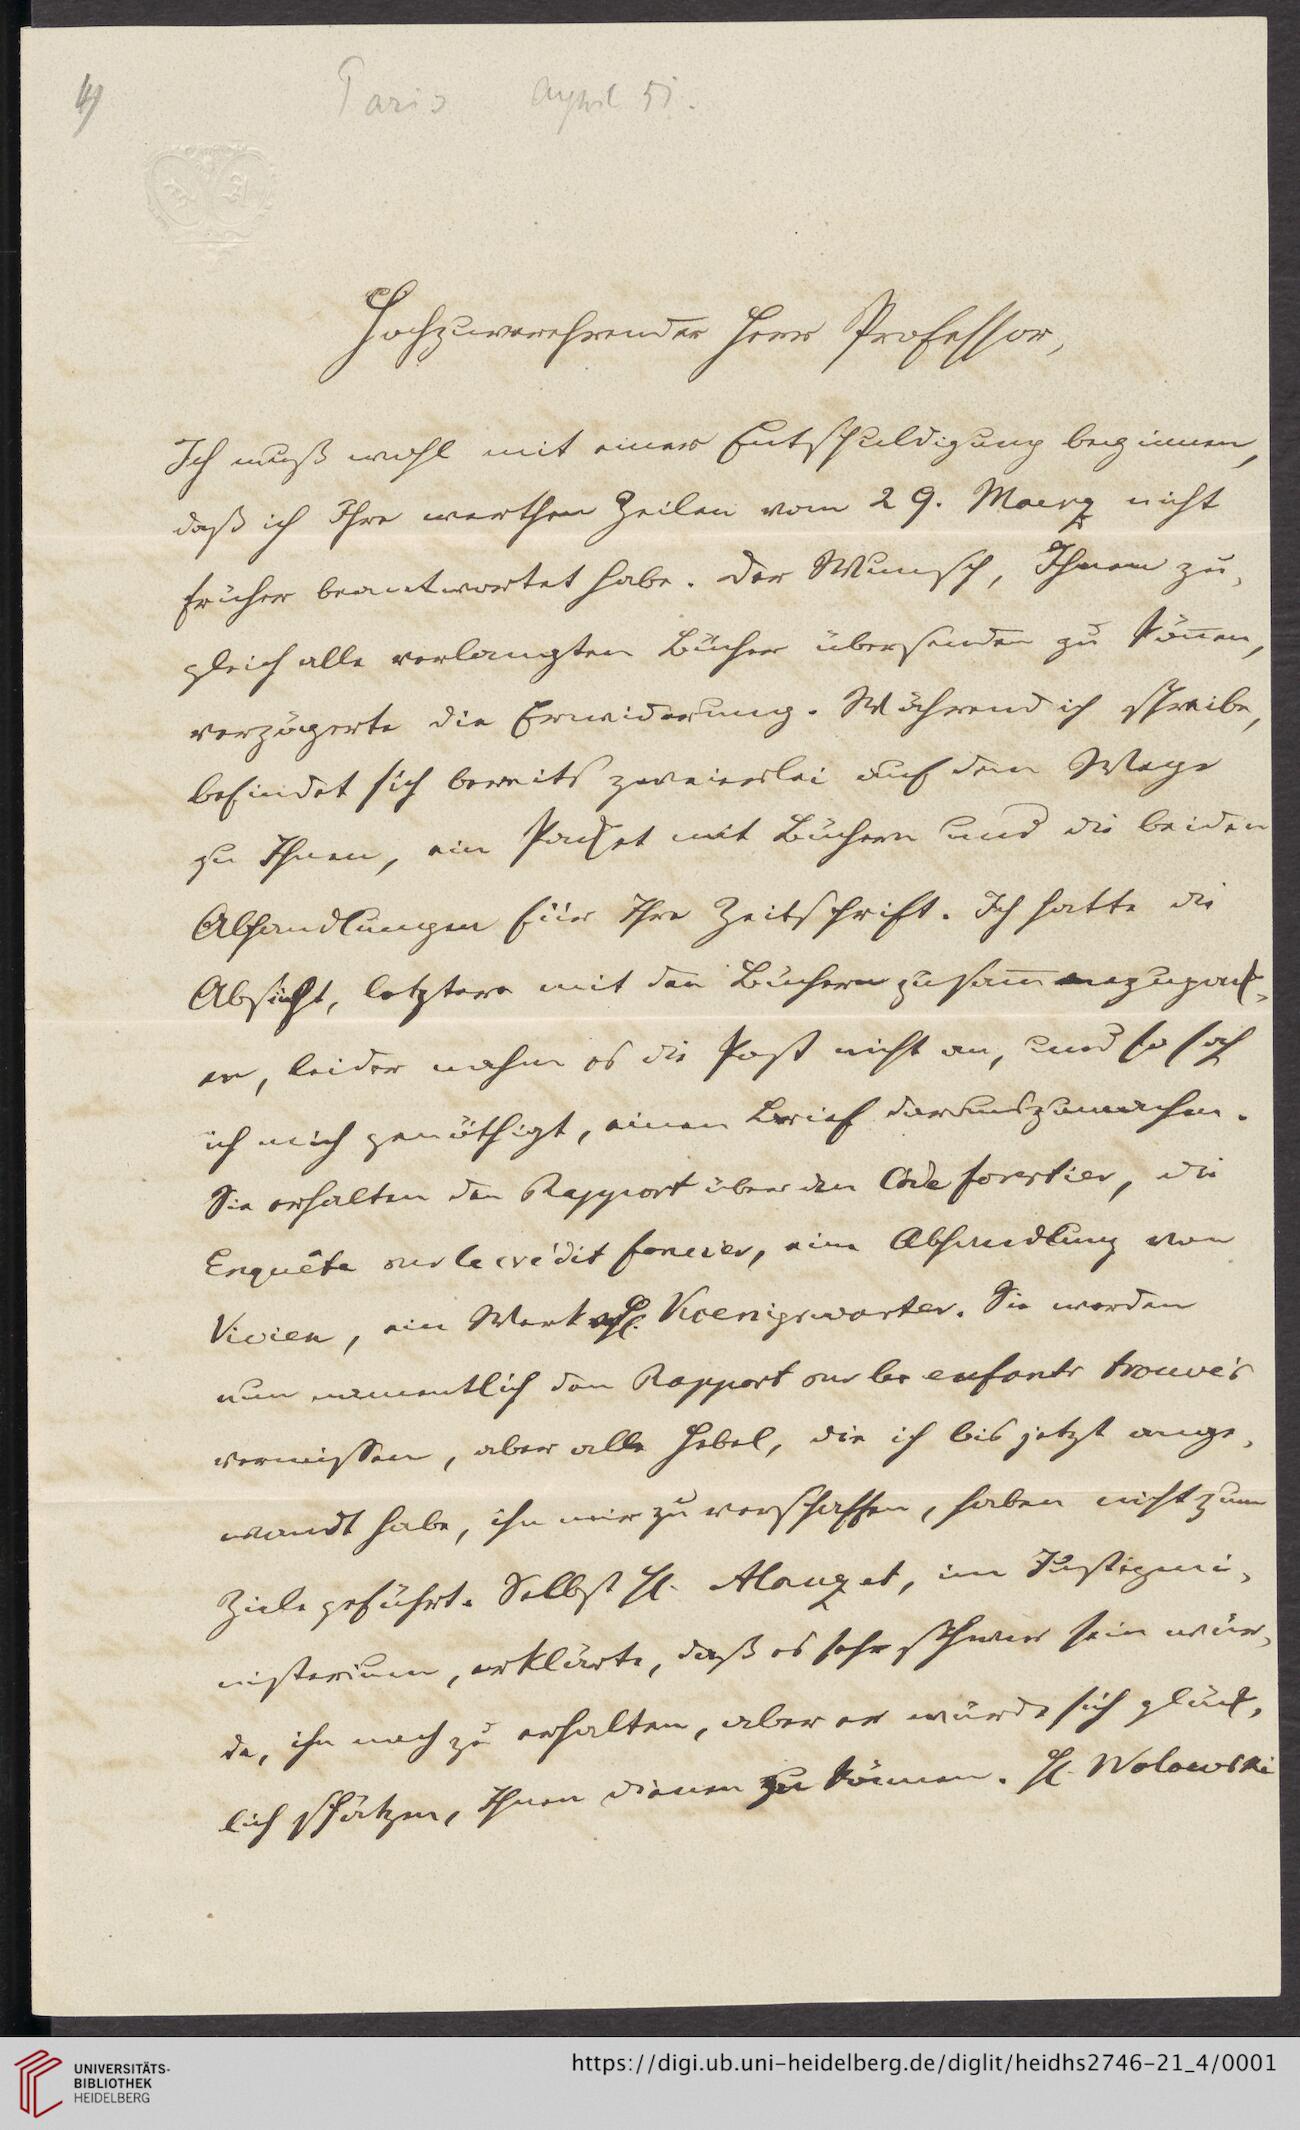 4)
Paris April 51.
Hochzuverehrender Herr Professor,
Ich muß wohl mit einer Entschuldigung beginnen,
daß ich Ihre werthen Zeilen vom 29. Maerz nicht
früher beantwortet habe. Der Wunsch, Ihnen zu-
gleich alle verlangten Bücher übersenden zu können,
verzögerte die Erwiderung. Während ich schreibe,
befindet sich bereits zweierlei auf dem Wege
zu Ihnen, ein Packet mit Büchern und die beiden
Abhandlungen für Ihre Zeitschrift. Ich hatte die
Absicht, letztere mit den Büchern zusammenzupack-
en, leider nahm es die Post nicht an, und so sah
ich mich genöthigt, einen Brief darauszumachen.
Sie erhalten den Rapport über den Code forestier, die
Enquête sur le crédit foncier, eine Abhandlung von
Vivien, ein Werk v. H. Koenigswarter. Sie werden
nun namentlich den Rapport sur les enfants trouvés
vermissen, aber alle Hebel, die ich bis jetzt ange-
wandt habe, ihn mir zu verschaffen, haben nicht zum
Ziele geführt. Selbst H. Alauzet, im Justizmi-
nisterium, erklärte, daß es sehr schwer sein wür-
de, ihn noch zu erhalten, aber er würde sich glück-
lich schätzen, Ihnen dienen zu können. H. Wolowski
UNIVERSITÄTS-
BIBLIOTHEK
HEIDELBERG
https://digi.ub.uni-heidelberg.de/diglit/heidhs2746-21_4/0001